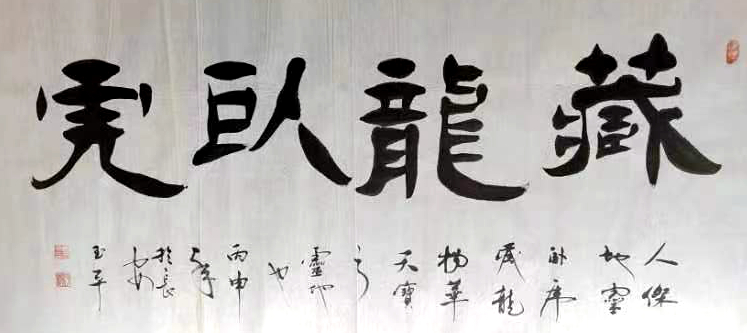 藏龍臥虎
人傑
地靈
臥虎
藏龍
物華
天寶
之
靈地
也
丙申
於長
安
玉平